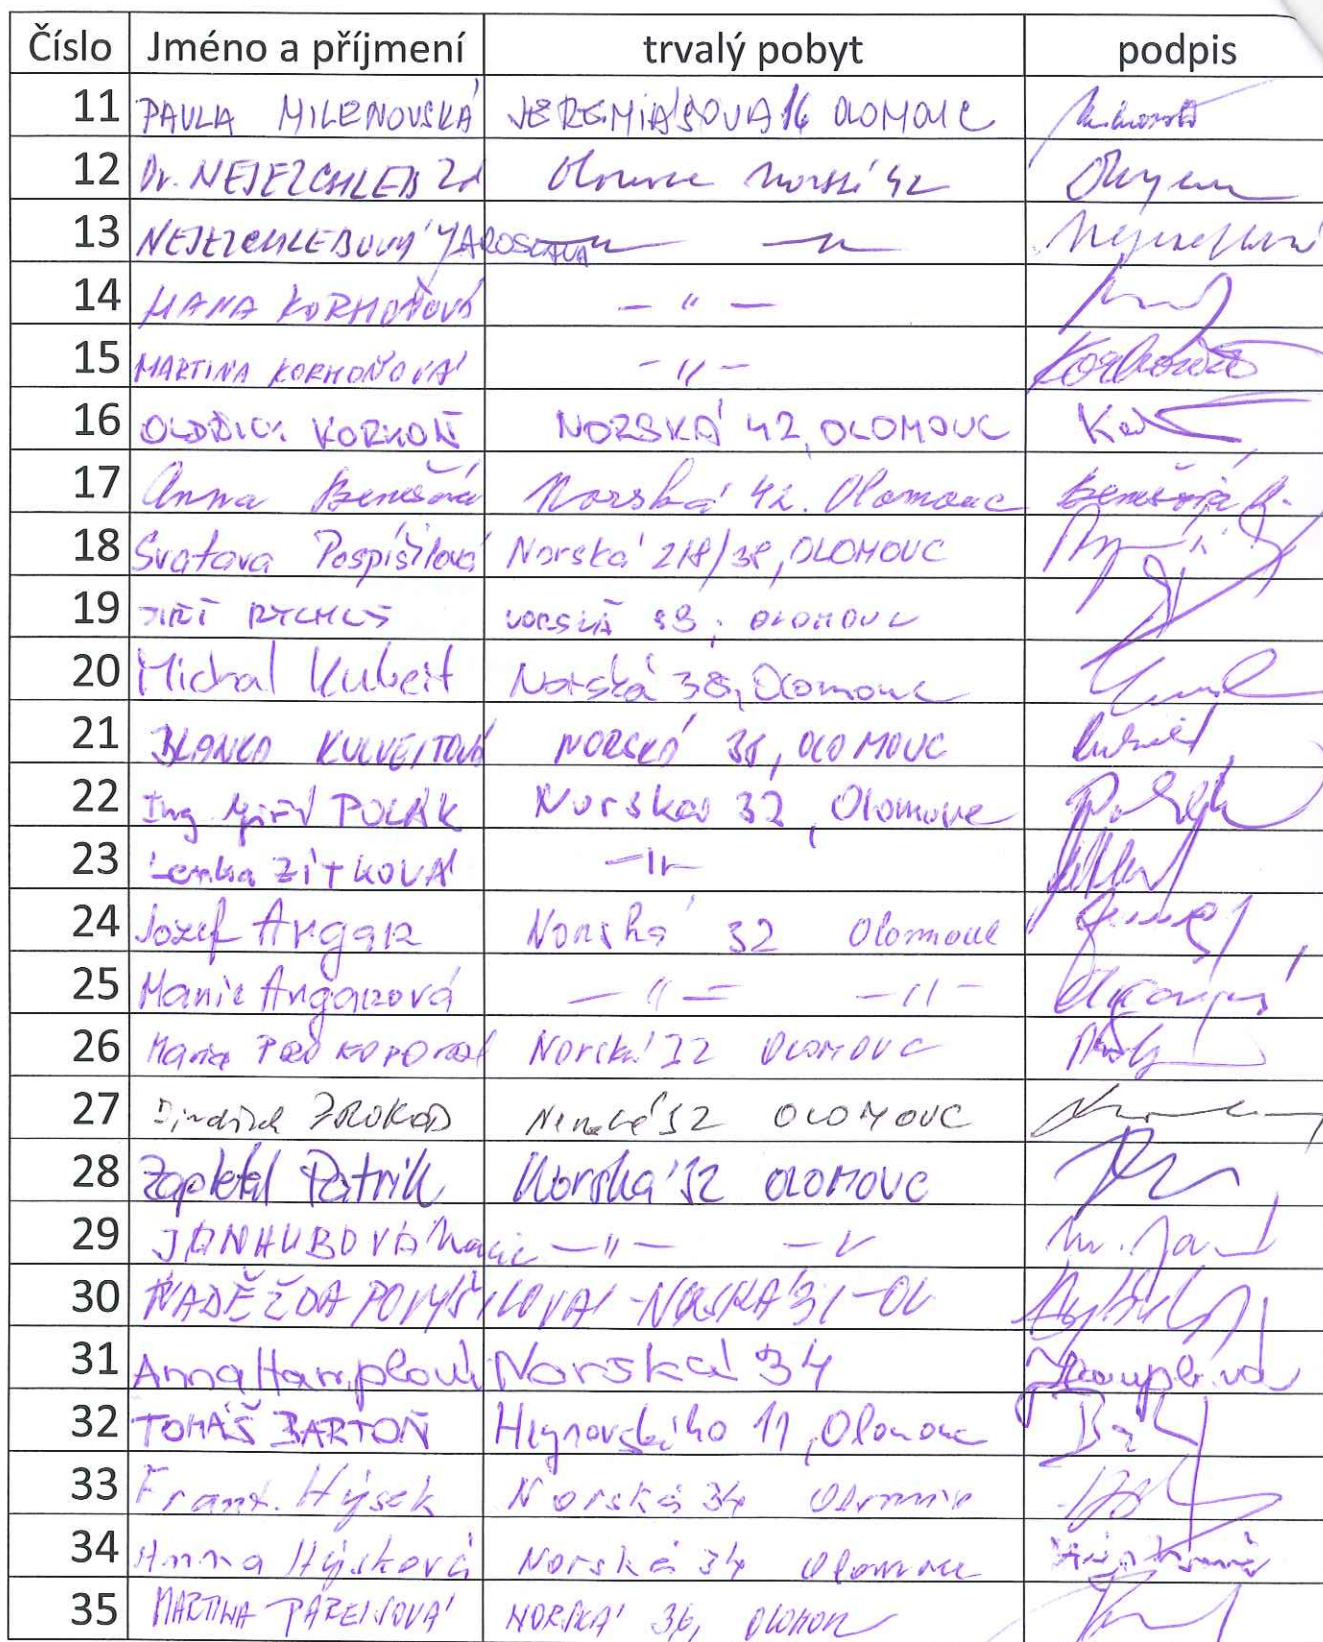 Číslo Jméno a příjmení trvalý pobyt podpis
11 PAVLA MILENOVSKÁ JEREMIÁŠOVA 16 OLOMOUC
12 Dr. NEJEZCHLEB Zd Olomouc Norská 42
13 NEJEZCHLEBOVÁ JAROSLAVA — " — — " —
14 HANA KORHOŇOVÁ — " —
15 MARTINA KORHOŇOVÁ - " -
16 OLDŘICH KORHOŇ NORSKÁ 42, OLOMOUC
17 Anna Benešová Norská 42. Olomouc Benešová A.
18 Svatava Pospíšilová Norská 218/38, OLOMOUC
19 JIŘÍ RYCHLÝ NORSKÁ 38, OLOMOUC
20 Michal Kulveit Norská 38, Olomouc
21 BLANKA KULVEITOVÁ NORSKÁ 38, OLOMOUC
22 Ing. Jiří POLÁK Norská 32, Olomouc
23 Lenka ZÍTKOVÁ — " —
24 Jozef Angar Norská 32 Olomouc
25 Marie Angarová — " — — " —
26 Marie Norská 32 OLOMOUC
27 Jindřich Norská 32 OLOMOUC
28 Zapletal Patrik Norská 32 OLOMOUC
29 JANHUBOVÁ Marie — " — — " —
30 NADĚŽDA POVYŠILOVÁ - NORSKÁ 31 - OL
31 Anna Hamplová Norská 34 Hamplová
32 TOMÁŠ BARTOŇ Heyrovského 11, Olomouc
33 Frant. Hýsek Norská 34 Olomouc
34 Anna Hýsková Norská 34 Olomouc Hýsková
35 MARTINA NORSKÁ 36, OLOMOUC